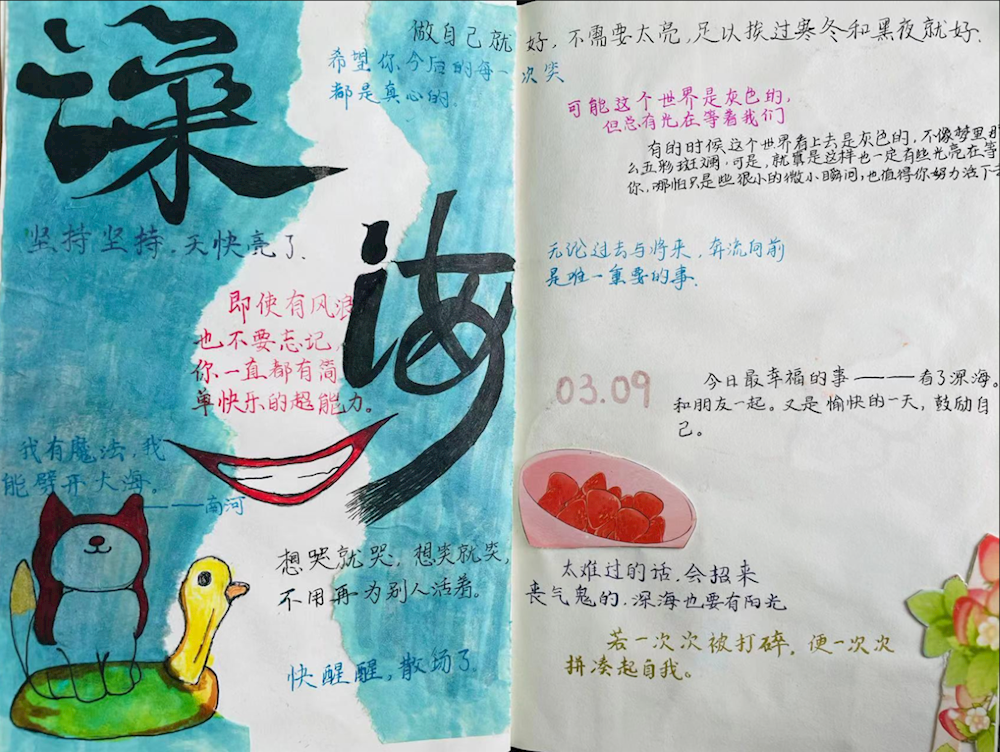 深海
做自己就好，不需要太亮，足以挨过寒冬和黑夜就好.
希望你今后的每一次笑
都是真心的。
坚持坚持，天快亮了.
即使有风浪
也不要忘记，
你一直都有简
单快乐的超能力。
我有魔法，我
能劈开大海。
———南河
想哭就哭，想笑就笑，
不用再为别人活着。
快醒醒，散场了
可能这个世界是灰色的，
但总有光在等着我们
有的时候这个世界看上去是灰色的，不像梦里那
么五彩斑斓，可是，就算是这样也一定有些光亮在等
你，哪怕只是些很小的微小瞬间，也值得你努力活下去
无论过去与将来，奔流向前
是唯一重要的事.
03.09
今日最幸福的事———看了深海。
和朋友一起。又是愉快的一天，鼓励自
己。
太难过的话，会招来
丧气鬼的，深海也要有阳光
若一次次被打碎，便一次次
拼凑起自我。